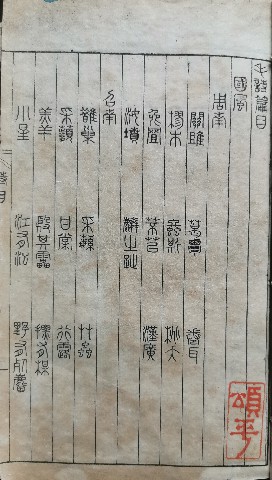 毛詩篇目
國風
周南
關雎 葛覃 卷耳
樛木 螽斯 桃夭
兔罝 芣苢 漢廣
汝墳 麟之趾
召南
鵲巢 采蘩 草蟲
采蘋 甘棠 行露
羔羊 殷其靁 摽有梅
小星 江有汜 野有死麕
頌平